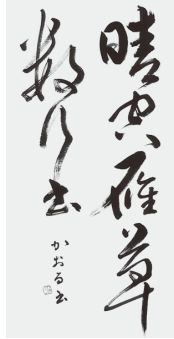 晴空雁草
数行書
かおる書